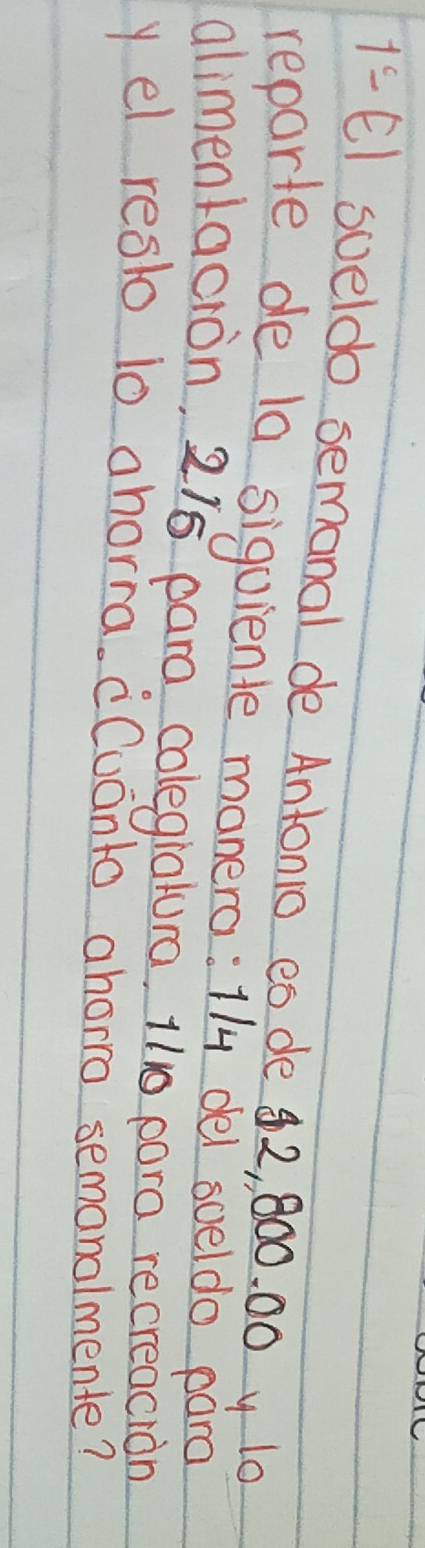 1º- El sueldo semanal de Antonio es de $2,800.00 y lo
reparte de la siguiente manera: 1/4 del sueldo para
alimentación, 2/5 para colegiatura, 1/10 para recreación
y el resto lo ahorra. ¿Cuánto ahorra semanalmente?